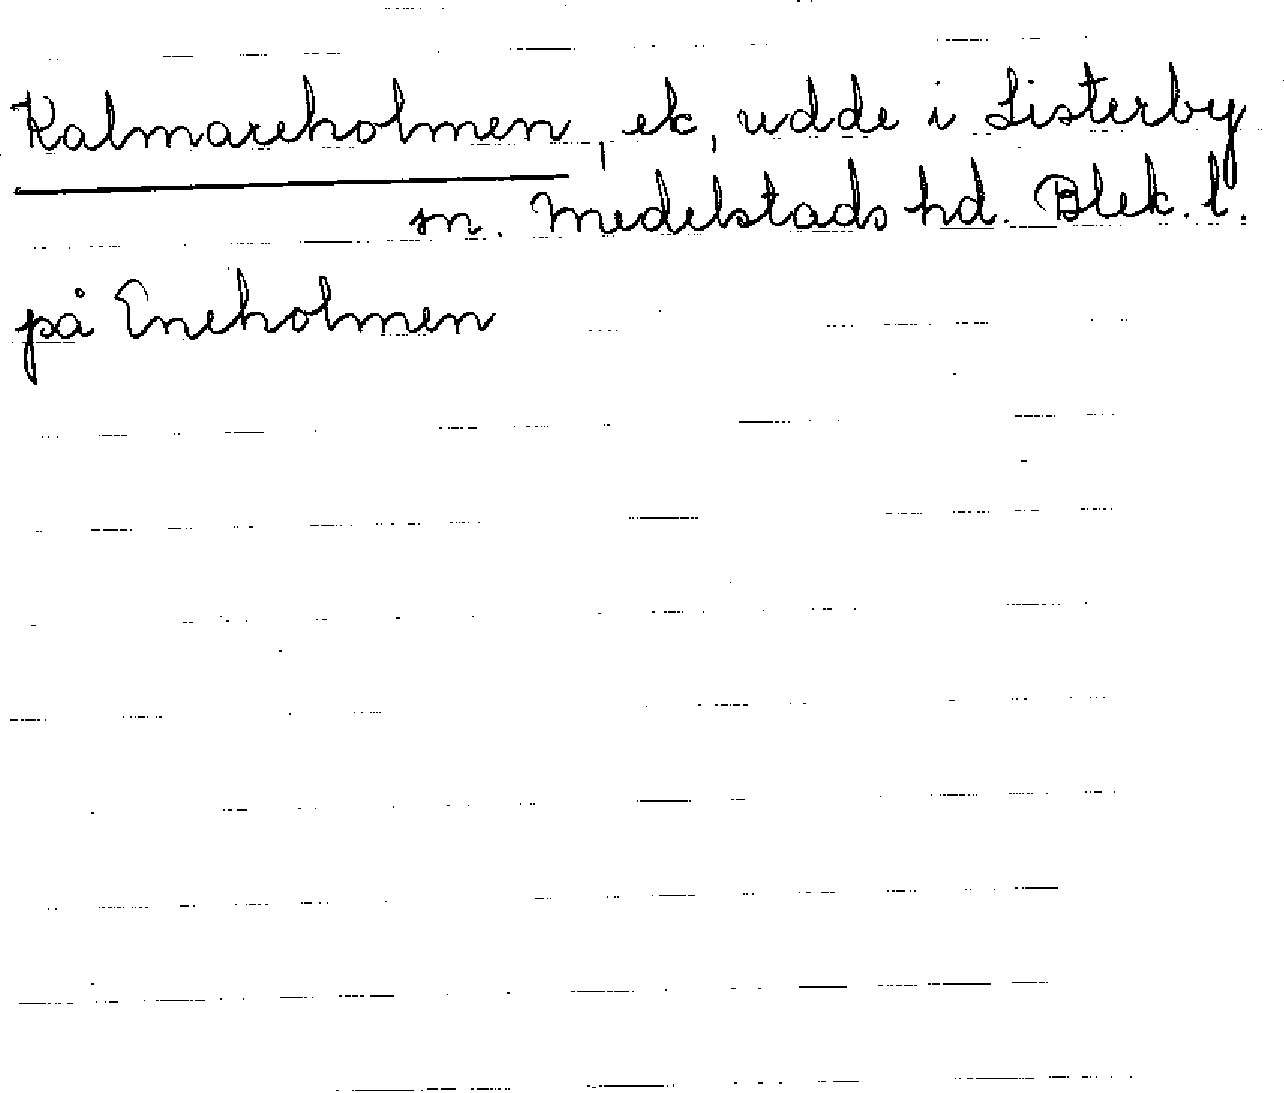 Kalmareholmen, ek, udde i Listerby
sn. Medelstads hd. Blek. l.
på Eneholmen